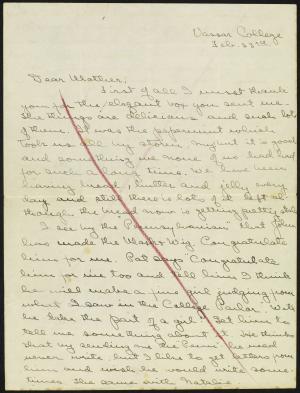 Vassar College
Feb. 23rd
Dear Mother,
First of all I must thank
you for the elegant box you sent me.
The things are delicious and such lots
of them. It was the peppermint which
took me by storm. my but it is good
and something we none of us had had
for such a long time. We have been
having bread, butter and jelly every
day and still there is lots of it left al-
though the bread now is getting pretty stale.
I see by the "Pennsylvanian" that John
has made the Mask & Wig. Congratulate
him for me. Pat says "Congratulate
him for me too and tell him I think
he will make a fine girl judging from
what I saw in the College Parlor. Will
he take the part of a girl?" Get him to
tell me something about it. He thinks
that my sending me the Penn. he need
never write, but I like to get letters from
him and wish he would write some-
times. The same with Natalie.